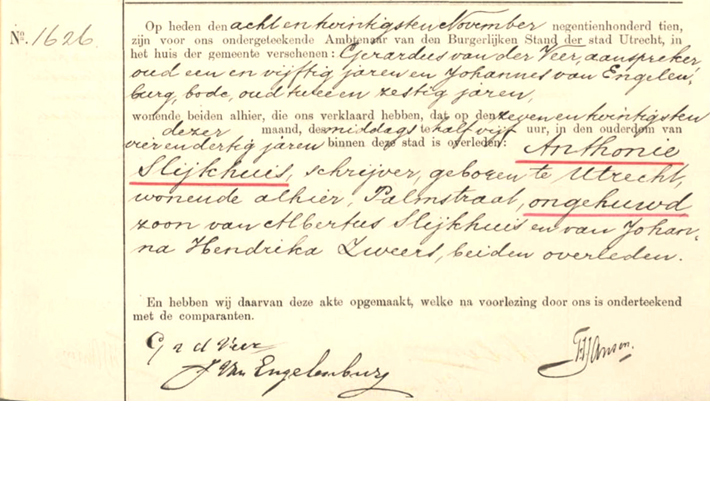 No. 1626.
Op heden den acht en twintigsten November negentienhonderd tien,
zijn voor ons ondergeteekende Ambtenaar van den Burgerlijken Stand der stad Utrecht, in
het huis der gemeente verschenen: Gerardus van der Veer, aanspreker,
oud een en vijftig jaren en Johannes van Engelen,
burg, bode, oud twee en zestig jaren,
wonende beiden alhier, die ons verklaard hebben, dat op den zeven en twintigsten
dezer maand, des middags te half vijf uur, in den ouderdom van
vier en dertig jaren binnen deze stad is overleden: Anthonie
Slijkhuis, schrijver, geboren te Utrecht,
wonende alhier, Palmstraat, ongehuwd
zoon van Albertus Slijkhuis en van Johan,
na Hendrika Zweers, beiden overleden.
En hebben wij daarvan deze akte opgemaakt, welke na voorlezing door ons is onderteekend
met de comparanten.
G v d Veer
J. Van Engelenburg
Jansen.